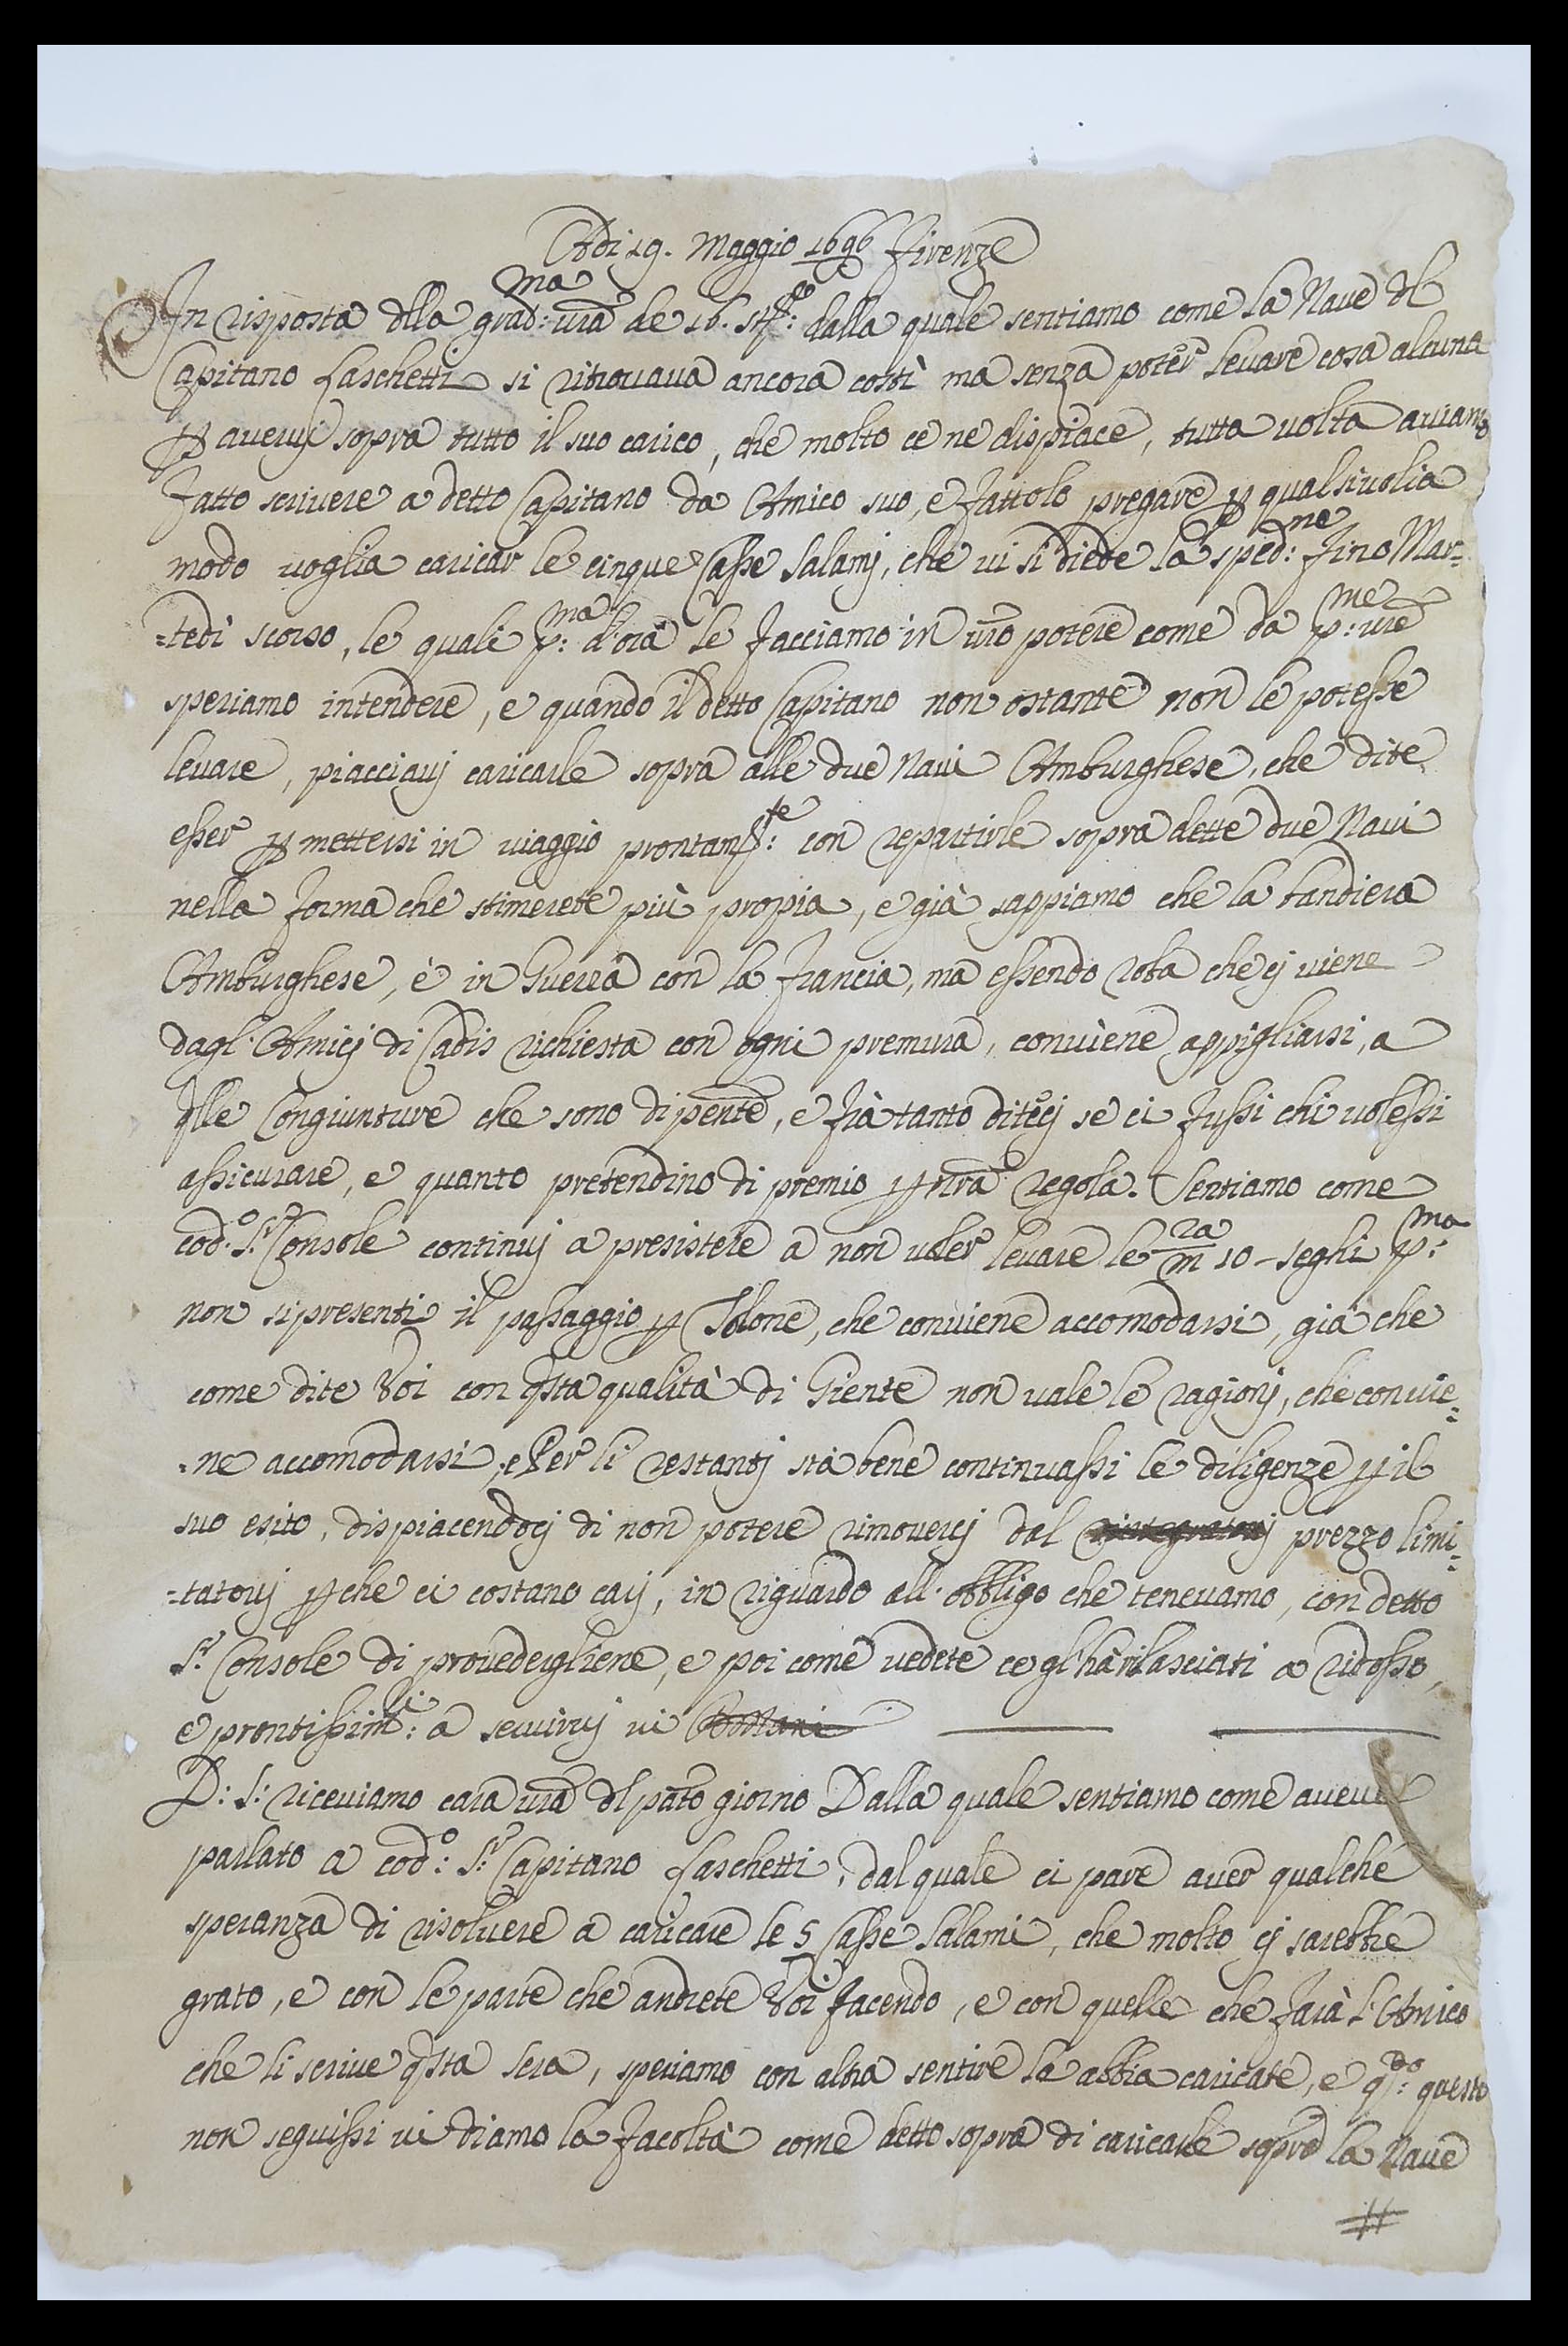 Adi 19. Maggio 1696 Firenze
In risposta dlla grad:ma vrã de 16. stte: dalla quale sentiamo come la Nave dl
Capitano Laschetti si ritrovava ancora costì ma senza poter levare cosa alcuna
p avervj sopra tutto il suo carico, che molto ce ne dispiace, tutta volta aviamo
fatto scrivere a detto Capitano da Amico suo, e fattolo pregare p qualsivolia
modo voglia caricar le cinque Casse Salamj, che vi si diede la sped:ne fino Mar-
-tedì scorso, le quali p:ma d'ora le facciamo in vrõ potere come da p:me vrẽ
speriamo intendere, e quando il detto Capitano non ostante non le potesse
levare, piacciavj caricarle sopra alle due Navi Amburghese, che dite
esser p mettersi in viaggio prontamte: con repartirle sopra dette due Navi
nella forma che stimerete più propia, e già sappiamo che la bandiera
Amburghese, è in Guerra con la Francia, ma essendo roba che cj viene
dagl'Amicj di Cadis richiesta con ogni premura, conviene appigliarsi, a
qlle Congiunture che sono di pẽnte, e frà tanto ditecj se ci fussi chi volessi
assicurare, e quanto pretendino di premio p nrã regola. Sentiamo come
cod.o S.r Console continuj a presistere a non voler levare le ra/m 10 - seghi p:ma
non si presenti il passaggio p Tolone, che conviene accomodarsi, già che
come dite Voi con qsta qualità di Giente non vale le ragionj, che convie=
=ne accomodarsi, e Per li restantj stà bene continuassi le diligenze p il
suo esito, dispiacendocj di non potere rimovercj dal prezzo limi=
=tatovj p che ci costano carj, in riguardo all'obbligo che tenevamo, con detto
S.r Console di provedergliene, e poi come vedete ce gl'hà rilasciati a ridosso,
e prontissim:i a servirvj vi
D: S: riceviamo cara vrã dl patõ giorno Dalla quale sentiamo come avevi
parlato a cod:o S.r Capitano Laschetti, dal quale ci pare aver qualche
speranza di risolvere a caricare le 5 Casse Salami, che molto cj sarebbe
grato, e con le parte che andrete Voi facendo, e con quelle che farà l'Amico
che li scrive qsta sera, speriamo con altra sentire la abbia caricate, e q:do questo
non seguissi vi diamo la facoltà come detto sopra di caricarle sopra la Nave
#